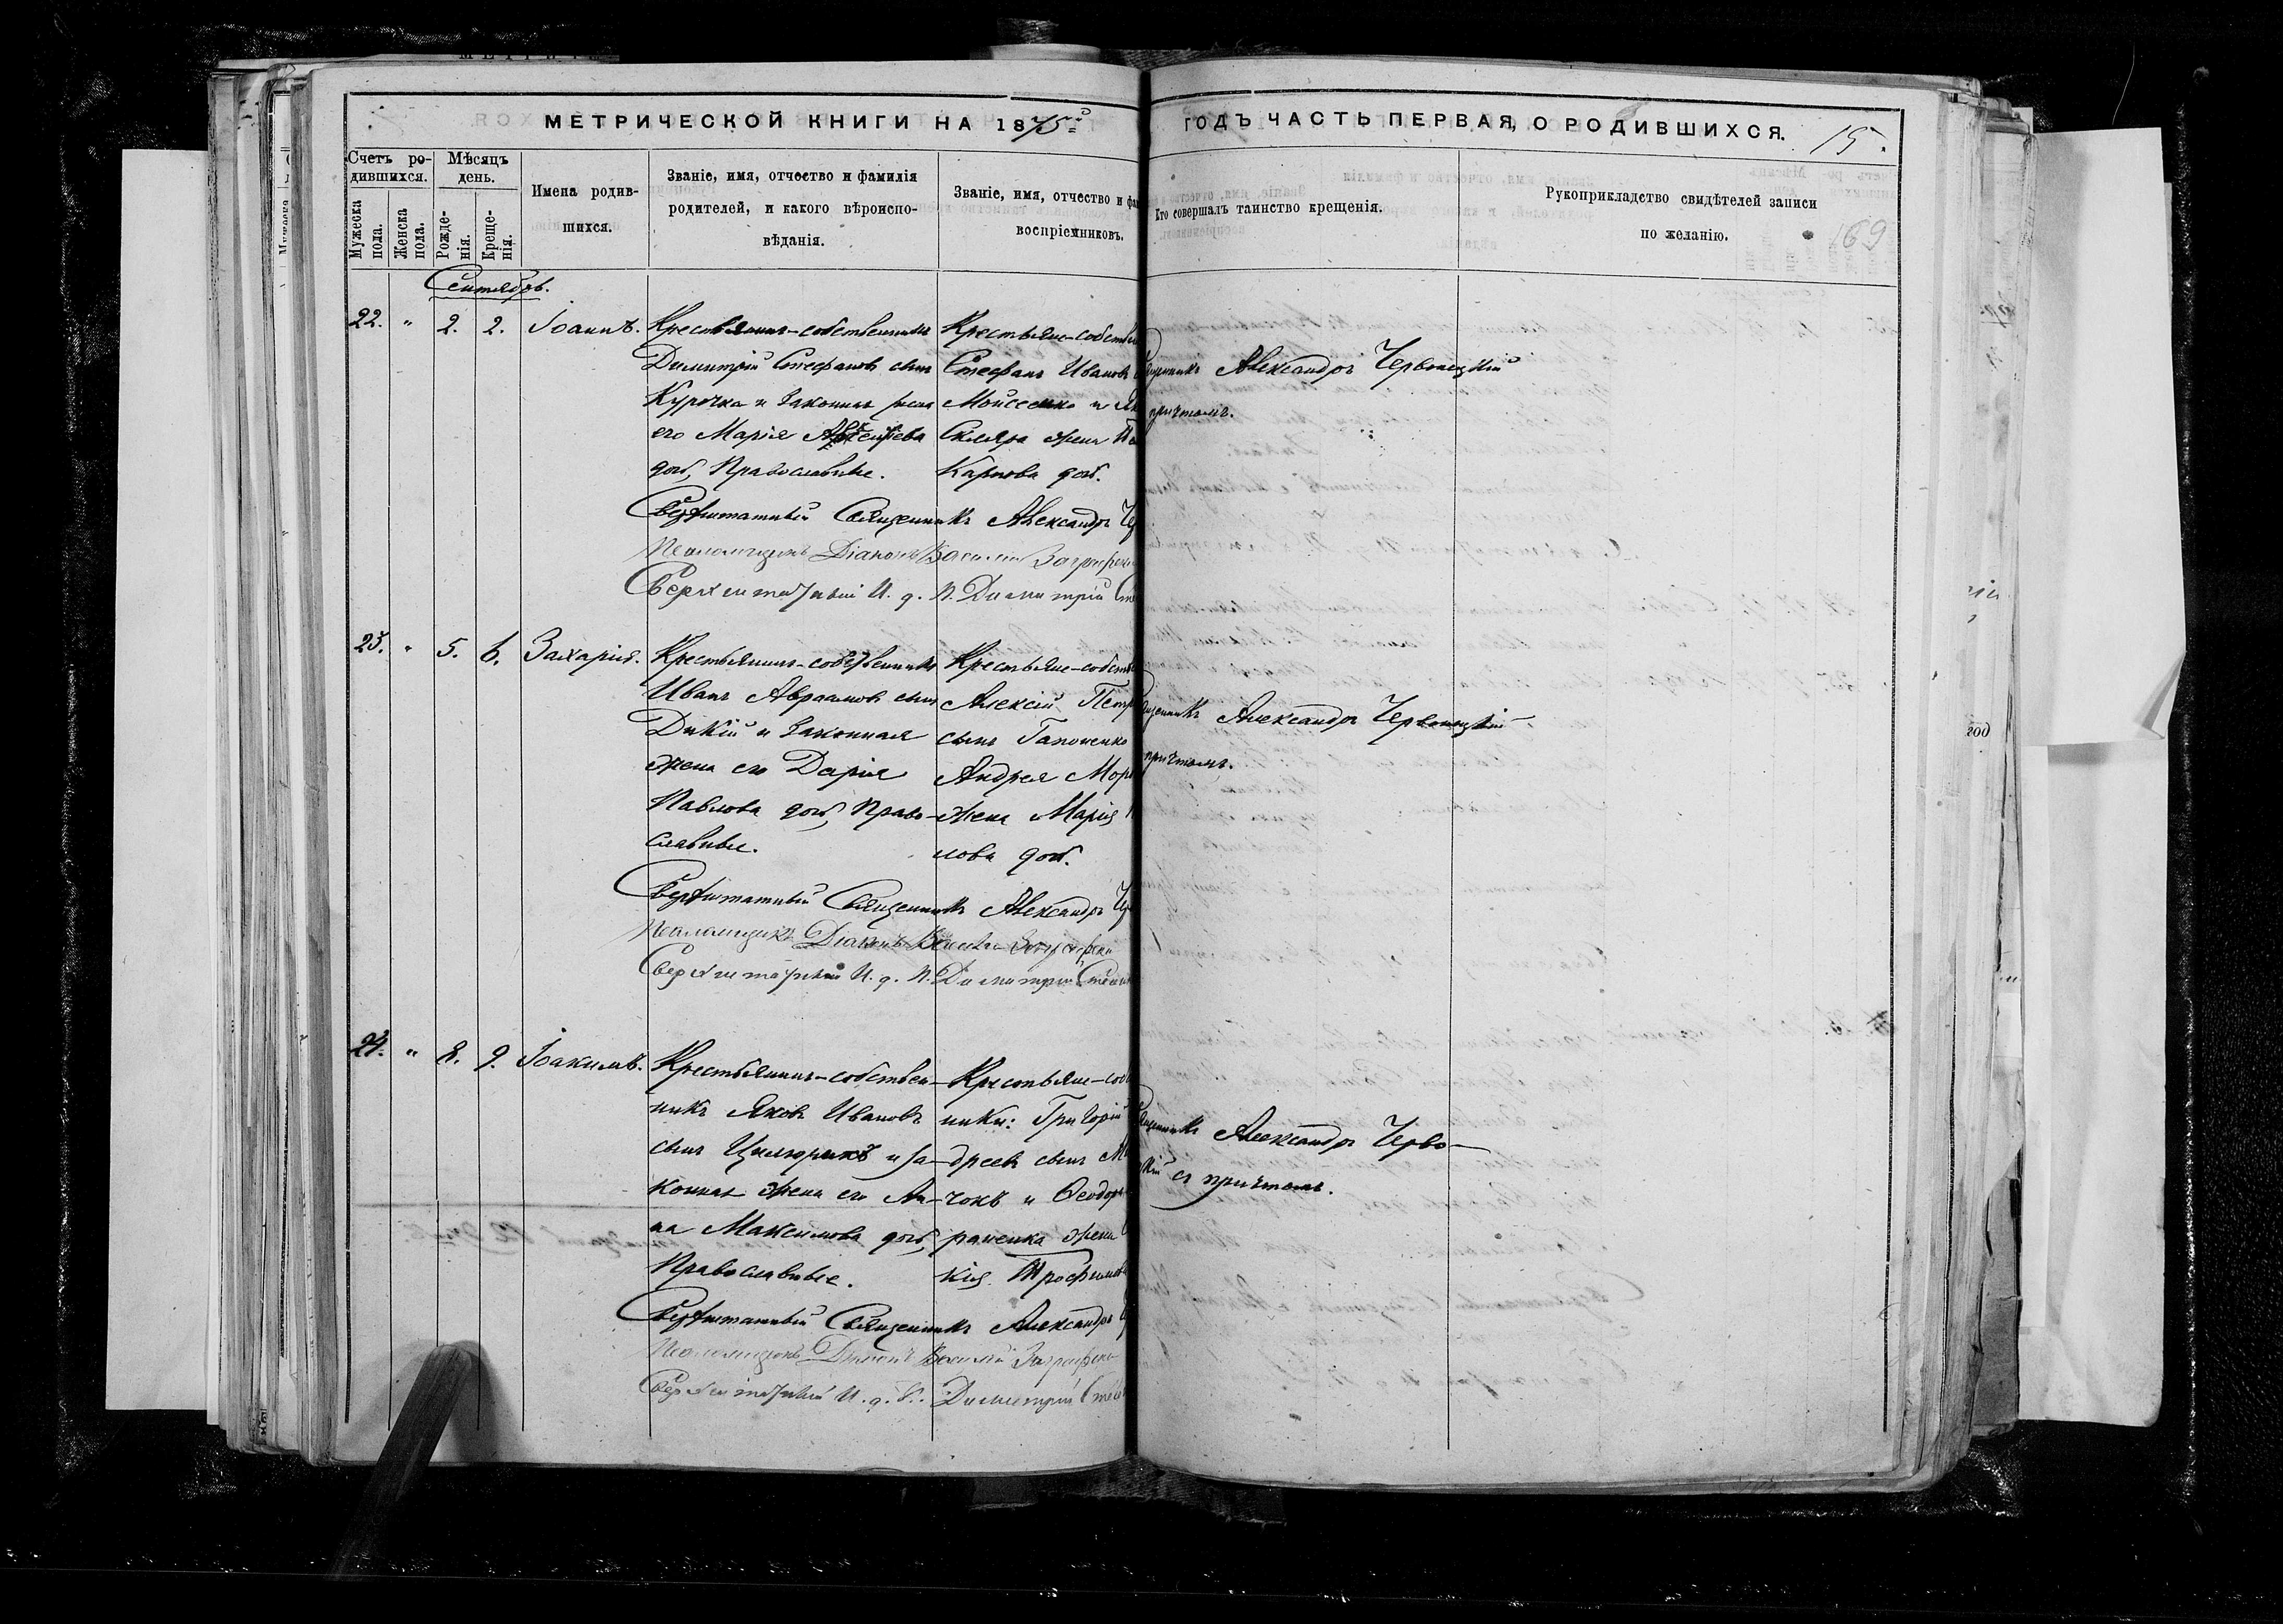 МЕТРИЧЕСКОЙ КНИГИ НА 1875й
ГОДЪ ЧАСТЬ ПЕРВАЯ, О РОДИВШИХСЯ.
15.
169
Счетъ родившихся.
Мужеска пола.
Женска пола.
Мѣсяцъ день.
Рожденія.
Крещенія.
Имена родившихся.
Званіе, имя, отчество и фамилія
родителей, и какого вѣроиспо-
вѣданія.
Званіе, имя, отчество и
воспріемниковъ.
Кто совершалъ таинство крещенія.
Рукоприкладство свидѣтелей записи
по желанію.
Сентябрь.
22. " 2. 2. Іоаннъ.
Крестьянинъ-собственникъ
Димитрій Стефановъ сынъ
Курочка и законная жена
его Марія
дочь, Православные.
Крестьяне-собствен
Стефанъ Ивановъ
Мойсеенко и
Скляра жена
Карпова дочь.
Александръ Червонецкій
причтомъ.
Сверхштатный Священникъ Александръ
Псаломщикъ Діаконъ Василій
Сверхштатный И. д. П. Димитрій
23. " 5. 6. Захарія.
Крестьянинъ-собственникъ
Иванъ Авраамовъ сынъ
Дикій и законная
жена его Дарія
Павлова дочь, Право-
славные.
Крестьяне-собств
Алексій Петр
сынъ Гапоненко
Андрея Мор
жена Марія
лова дочь.
Александръ Червонецкій
причтомъ.
Сверхштатный Священникъ Александръ
Псаломщикъ Діаконъ Василій
Сверхштатный И. д. П. Димитрій
24. " 8. 9. Іоакимъ.
Крестьянинъ-собствен-
никъ Яковъ Ивановъ
сынъ Цилюрикъ и за-
конная жена его Ан-
на Максимова дочь,
Православные.
Крестьяне-соб
ники: Григорій
дреевъ сынъ
чокъ и Ѳеодор
раненка жена
кія Трофимов
Александръ Черво-
кій съ причтомъ.
Сверхштатный Священникъ Александръ
Псаломщикъ Діаконъ Василій
Сверхштатный И. д. П. Димитрій